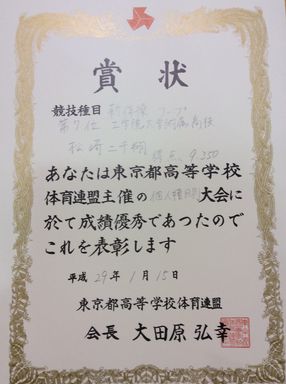 賞状
競技種目 新体操 フープ
第7位 工学院大学附属高校
松崎 二千翔 得点、9.350
あなたは東京都高等学校
体育連盟主催の個人種目別大会に
於て成績優秀であつたので
これを表彰します
平成29年1月15日
東京都高等学校体育連盟
会長 大田原弘幸